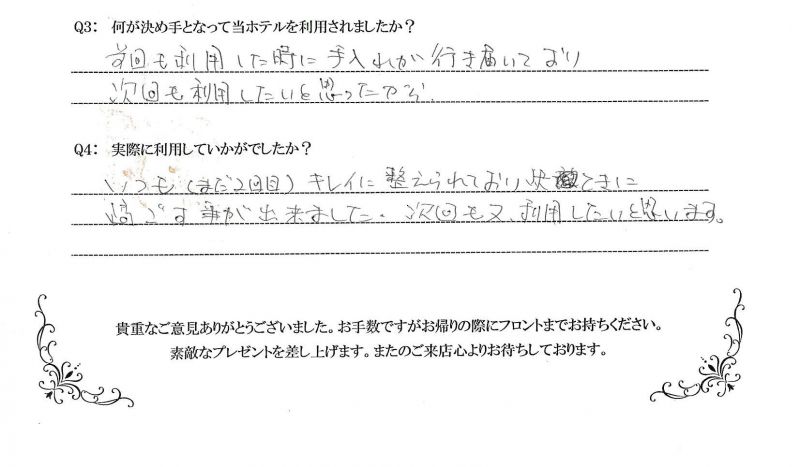 Q3： 何が決め手となって当ホテルを利用されましたか？
前回も利用した時に手入れが行き届いており
次回も利用したいと思ったから。
Q4： 実際に利用していかがでしたか？
いつも（まだ2回目）キレイに整えられており快てきに
過ごす事が出来ました。次回も又、利用したいと思います。
貴重なご意見ありがとうございました。お手数ですがお帰りの際にフロントまでお持ちください。
素敵なプレゼントを差し上げます。またのご来店心よりお待ちしております。